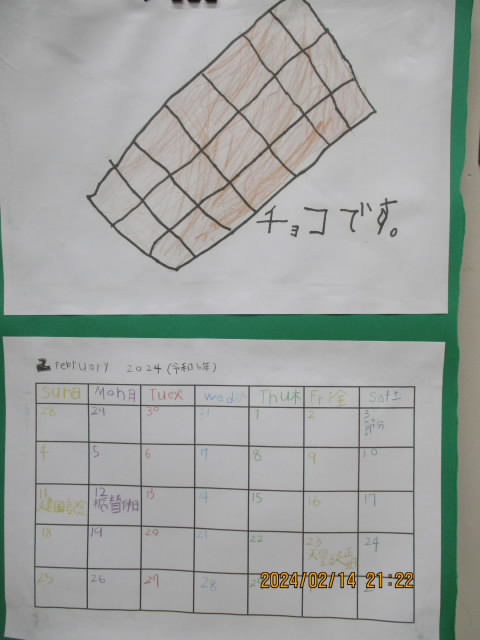 チョコです。
2 February 2024 (令和6年)
Sun日 Mon月 Tue火 Wed水 Thu木 Fri金 Sat土
28 29 30 31 1 2 3
節分
4 5 6 7 8 9 10
11 12 13 14 15 16 17
建国記念 振替休日
18 19 20 21 22 23 24
天皇誕生日
25 26 27 28
2024/02/14 21:22